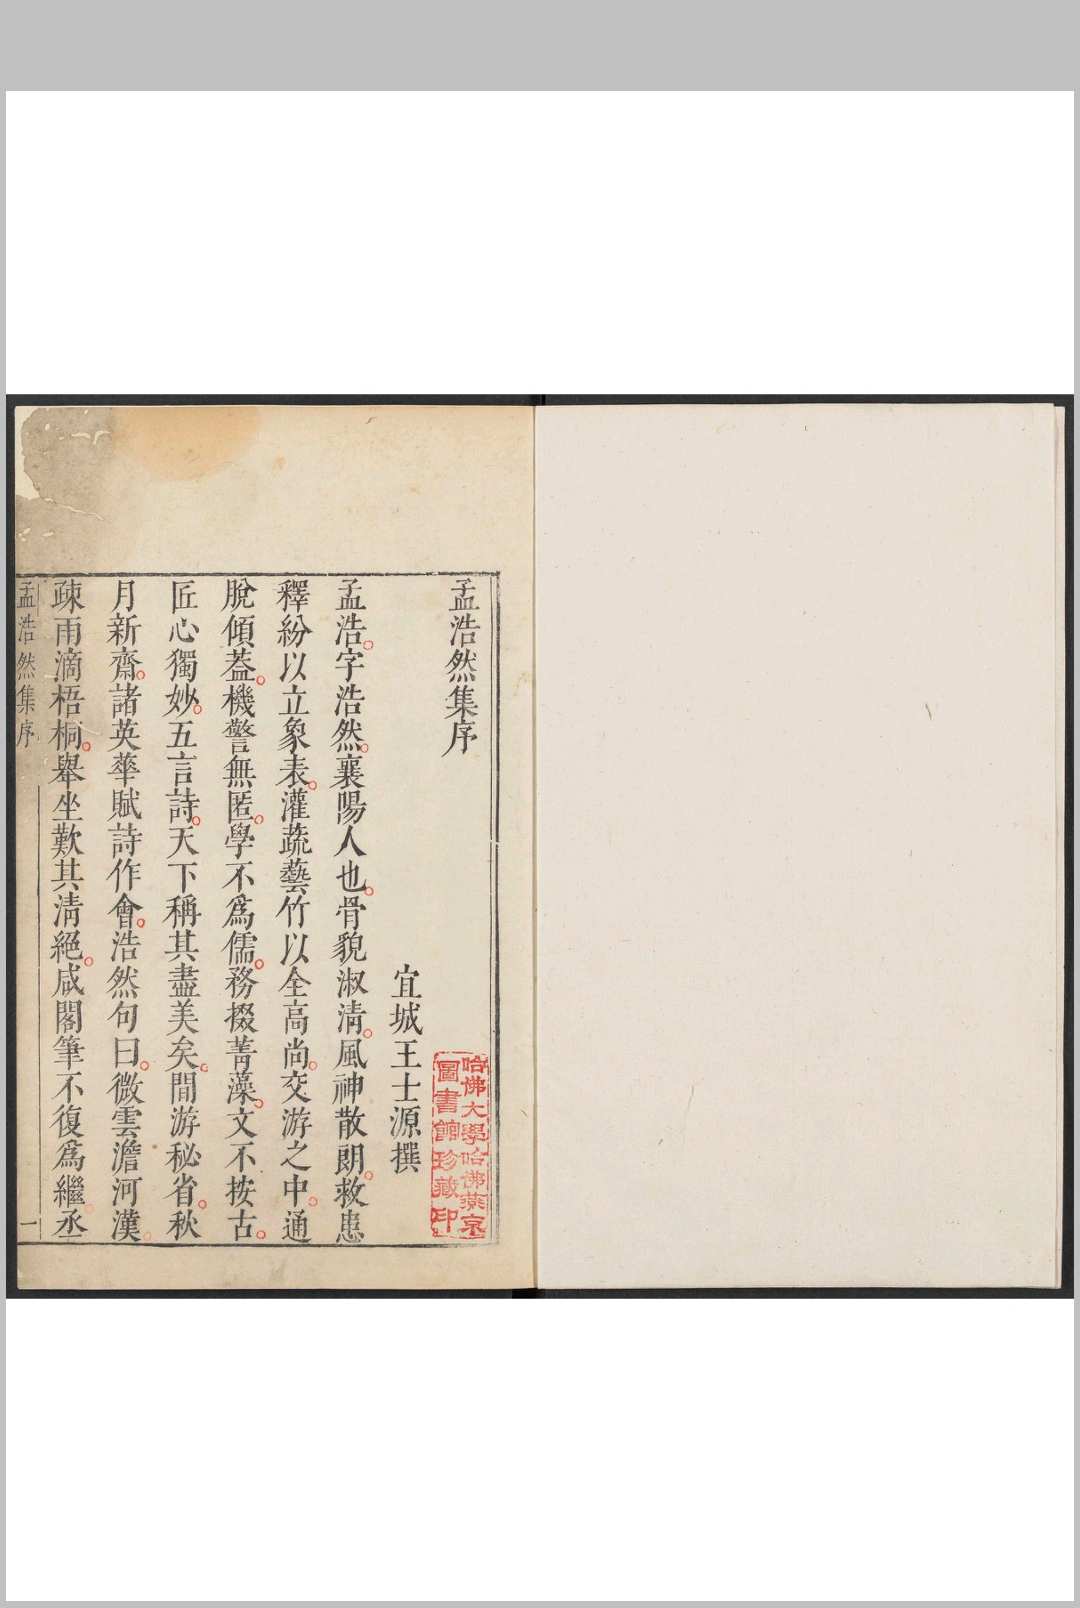 孟浩然集序
宜城王士源撰
孟浩字浩然襄陽人也骨貌淑清風神散朗救患
釋紛以立象表灌蔬藝竹以全高尚交游之中通
脫傾蓋機警無匿學不爲儒務掇菁藻文不按古
匠心獨妙五言詩天下稱其盡美矣閒游秘省秋
月新齋諸英華賦詩作會浩然句曰微雲澹河漢
疎雨滴梧桐舉坐歎其清絕咸閣筆不復爲繼丞
孟浩然集序
一
哈佛大學哈佛燕京
圖書館珍藏印